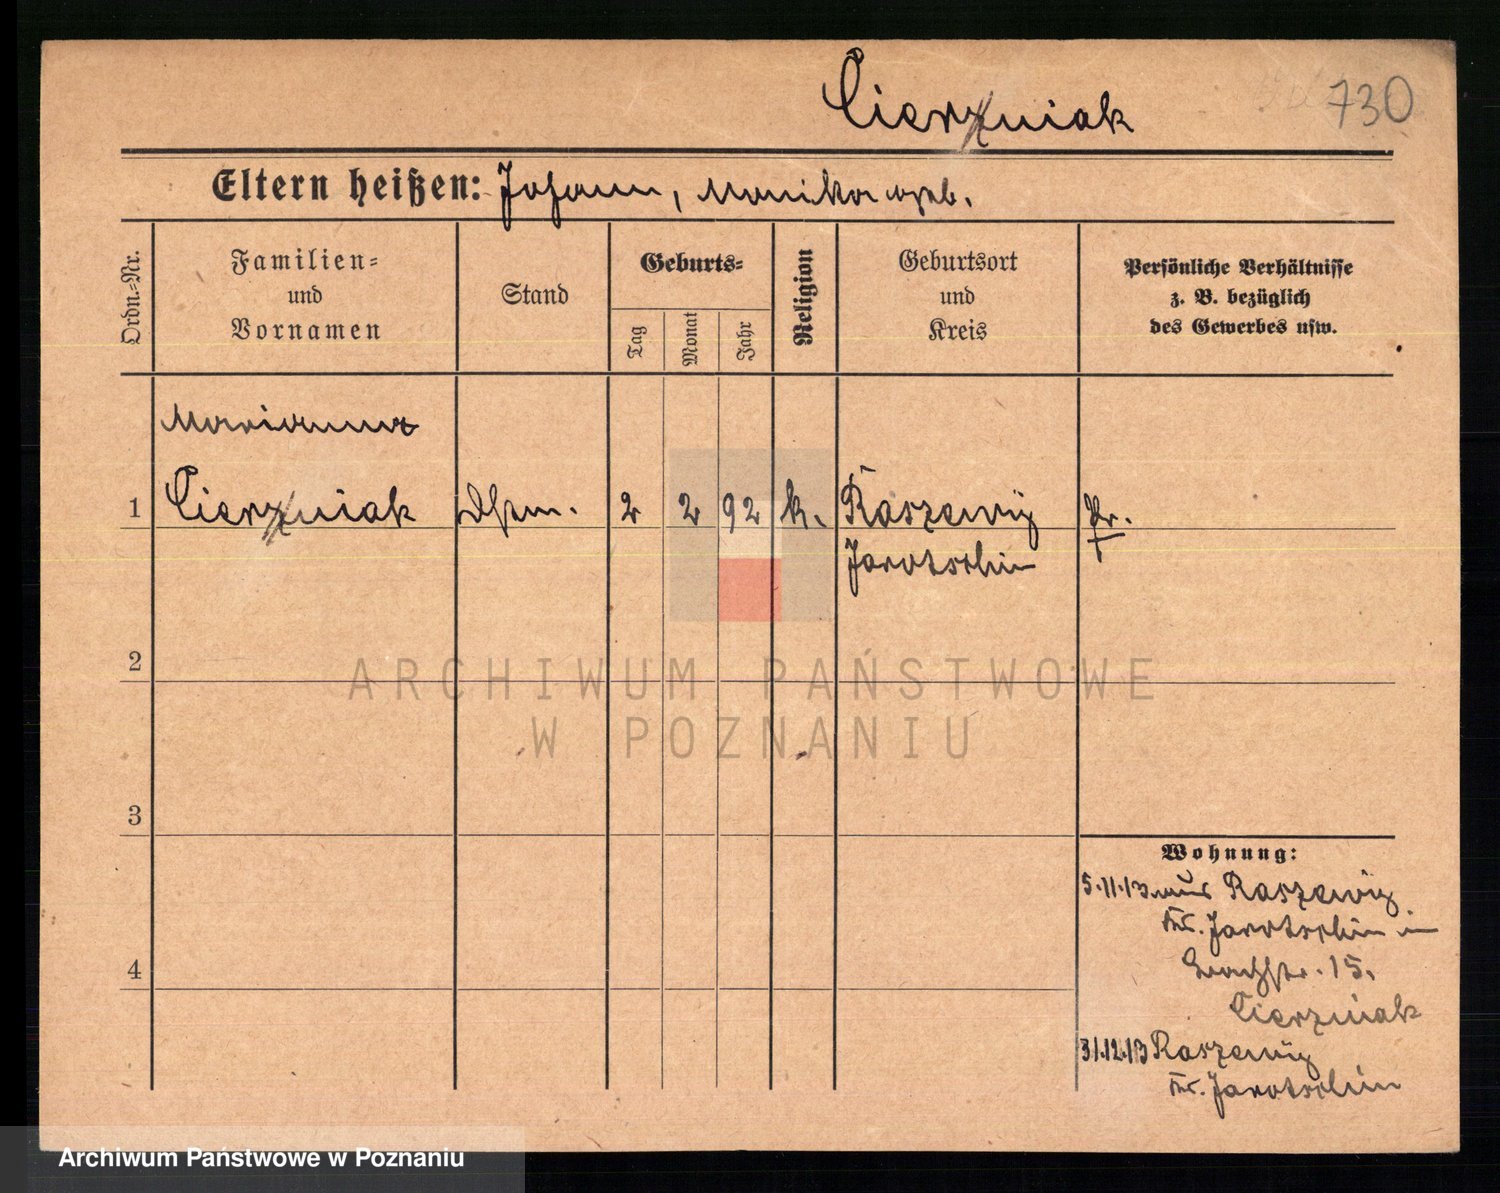 730
Cierzniak
Eltern heißen: Johann, Monika geb.
Ordn.-Nr.
Familien-
und
Vornamen
Stand
Geburts-
Tag
Monat
Jahr
Religion
Geburtsort
und
Kreis
Persönliche Verhältnisse
z. B. bezüglich
des Gewerbes usw.
Marianna
1 Cierzniak 2 2 92 k. Raszewy
Jarotschin
2
3
4
Wohnung:
5.11.13 aus Raszewy
Kr. Jarotschin in
15.
Cierzniak
31.12.13 Raszewy
Kr. Jarotschin
ARCHIWUM PAŃSTWOWE
W POZNANIU
Archiwum Państwowe w Poznaniu